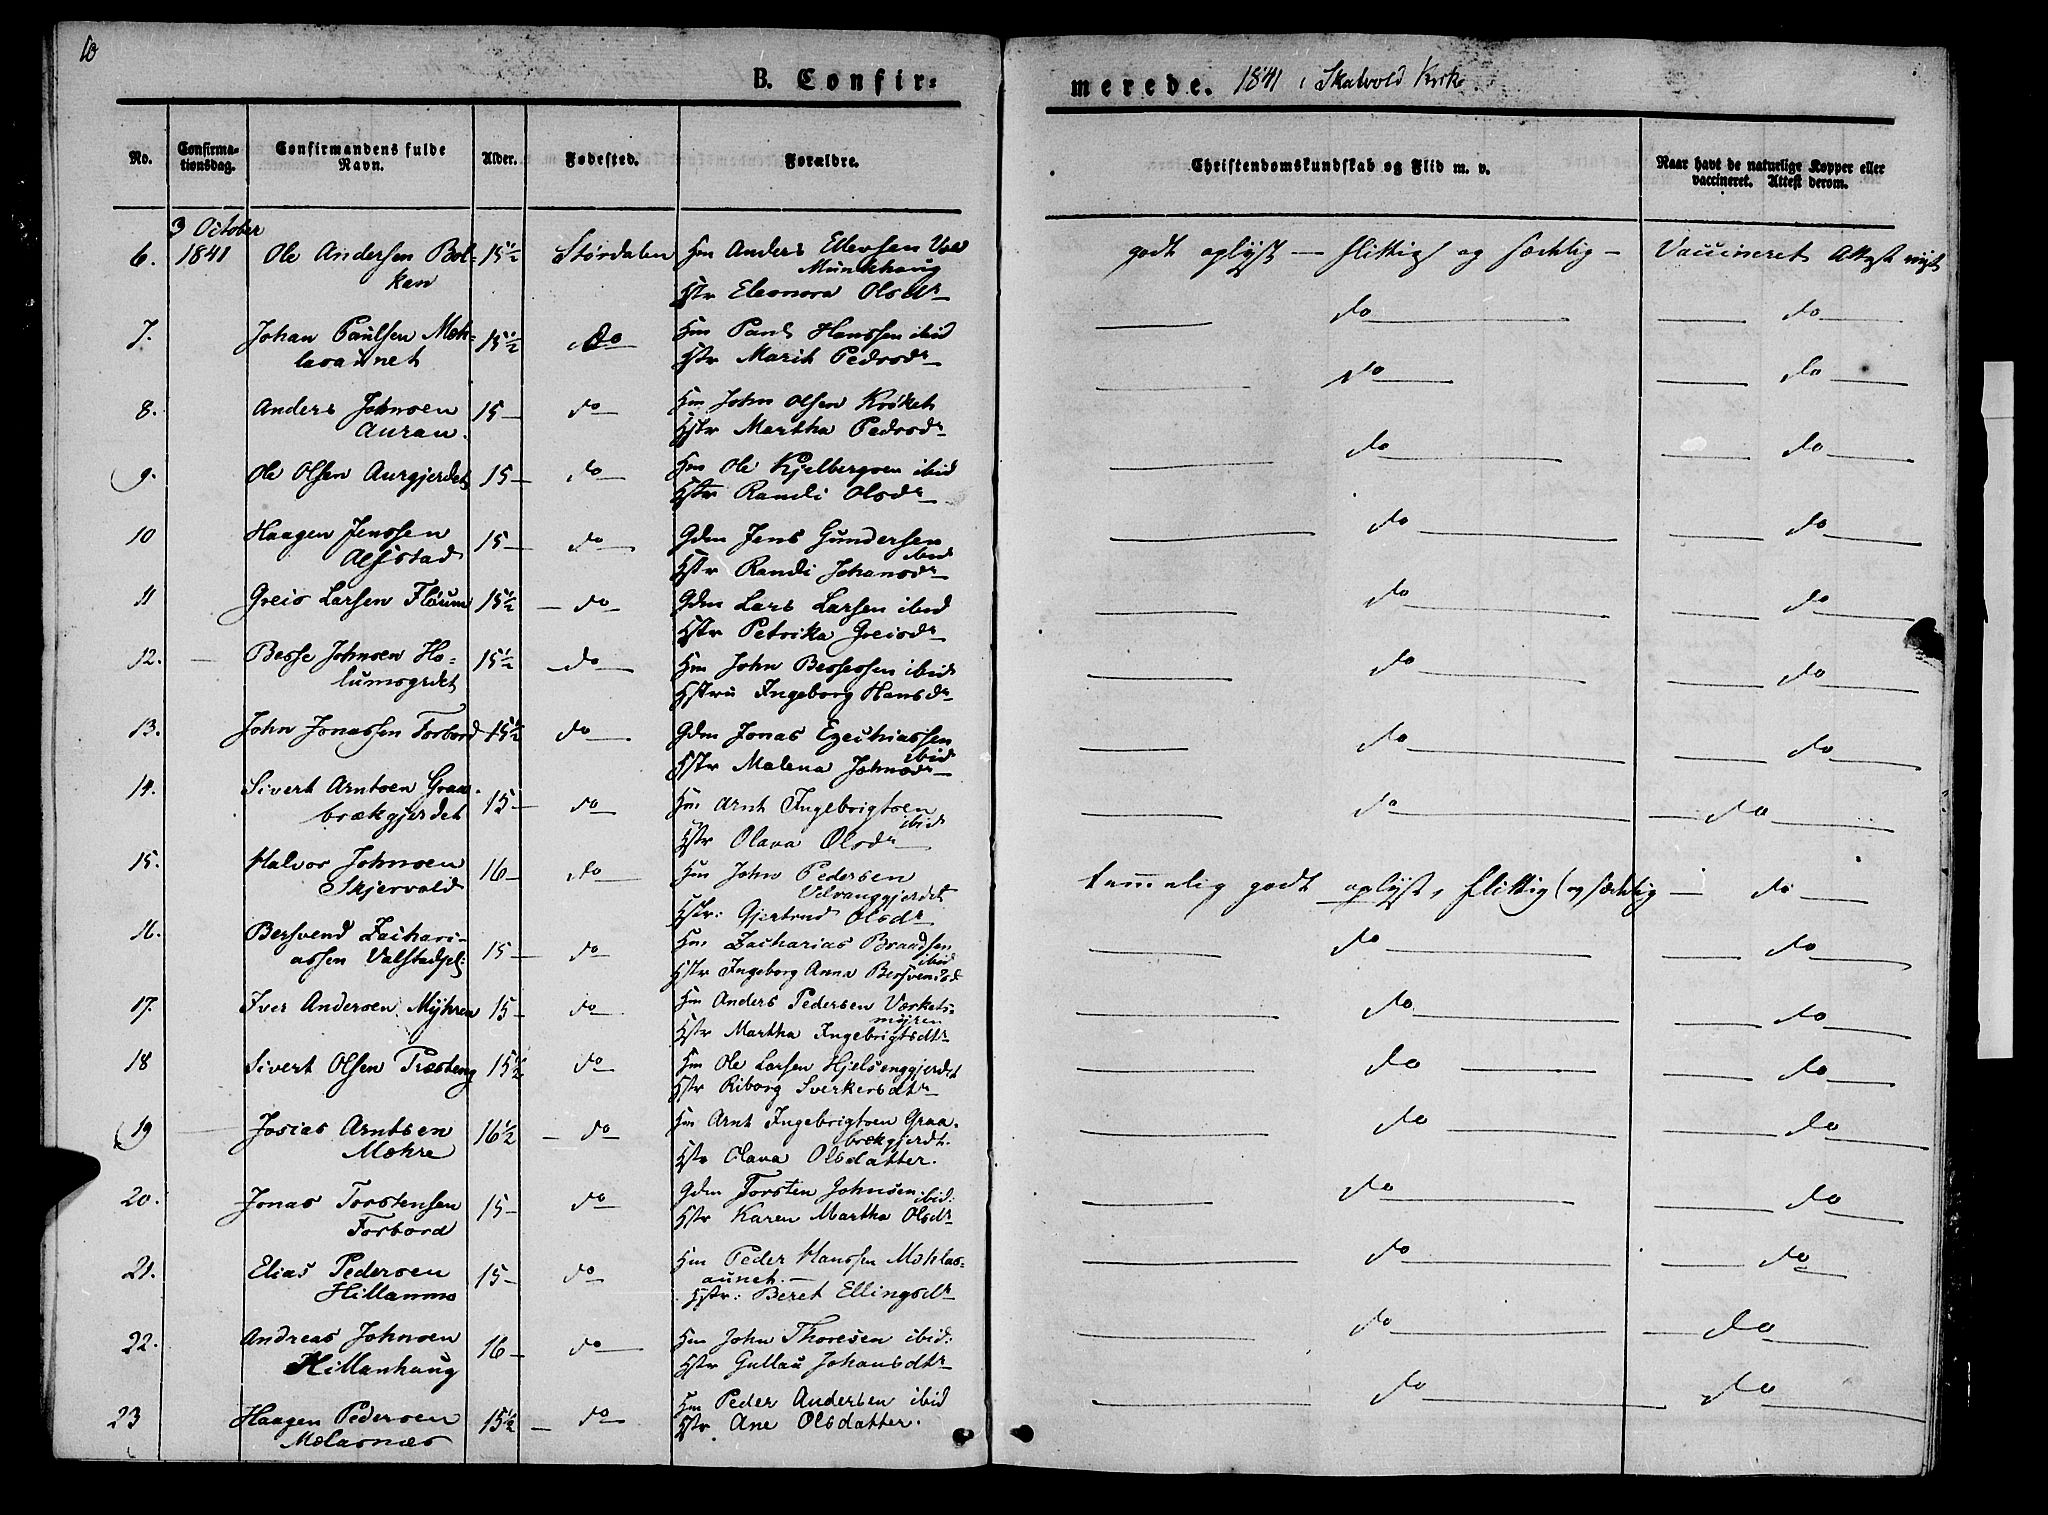 10
B. Confir-
merede. 1841 i Skatvold Kirke
No.
Confirma-
tionsdag.
Confirmandens fulde
Navn.
Alder.
Fødested.
Forældre.
Christendomskundskab og Flid m. v.
Naar havt de naturlige Kopper eller
vaccineret. Attest derom.
3 October
6. 1841 Ole Andersen Bol- 15½ Størdalen Hm Anders Ellevsen
ken Munkhaug
Hstr Eleonora Olsdr
godt oplyst — flittig og sædelig — Vaccineret Attest
7. Johan Paulsen Moh- 15½ do Hm Paul Hanssen ibid
lasaunet Hstr Marit Pedersdr
do do
8. Anders Johnsen 15 — do Hm John Olsen Krøket
Auran. Hstr Martha Pedersdr
do do
9. Ole Olsen Aurgjerdet 15 — do Hm Ole Kjelbergsen ibid
Hstr Randi Olsdr
do do
10 Haagen Jenssen 15 — do Gdm Jens Gundersen
Alstad ibid
Hstr Randi Johansdr
do do
11 Greis Larsen Florum 15½ — do Gdm Lars Larsen ibid
Hstr Petrika Greisdr
do do
12. Besse Johnsen Ho- 15½ do Hm John Bessesen ibid
lumsgrdet Hstru Ingeborg Hansdr
do do
13. John Jonassen Forbord 15½ do Gdm Jonas Ezechiassen
ibid
Hstr Malena Johnsdr
do do
14. Sivert Arntsen Graa- 15 — do Hm Arnt Ingebrigtsen
brækgjerdet ibid
Hstr Olava Olsdr
do do
15. Halvor Johnsen 16 — do Hm John Pedersen
Skjervold Velvanggjerdet
Hstr: Gjertrud Olsdr
temmelig godt oplyst, flittig og sædelig — do
16. Bersvend Zachari- 15 — do Hm Zacharias Braadsen
assen Valstadpl: ibid
Hstr Ingeborg Anna Bersvendsd
do do
17. Iver Andersen Mÿhren 15 — do Hm Anders Pedersen Værkets-
mÿren
Hstr Martha Ingebrigtsdtr
do do
18 Sivert Olsen Præsteng 15½ do Hm Ole Larsen Hjelsenggjerdet
Hstr Riborg Sverkersdtr
do do
19 Josias Arntsen 16½ — do Hm Arnt Ingebrigtsen Graa-
Mæhre brækgjerdt.
Hstr Olava Olsdatter.
do do
20. Jonas Torstensen 15 — do Gdm Torsten Johnsen ibid:
Forbord Hstr Karen Martha Olsdr
do do
21. Elias Pedersen 15 — do Hm Peder Hanssen Mohlas-
Hillanmo aunet. —
Hstr: Beret Ellingsdr
do do
22. Andreas Johnsen 16 — do Hm John Thoresen ibid:
Hillanhaug Hstr Gullau Johansdtr
do do
23 Haagen Pedersen 15½ — do Hm Peder Andersen ibid
Molasnæs Hstr Ane Olsdatter.
do do